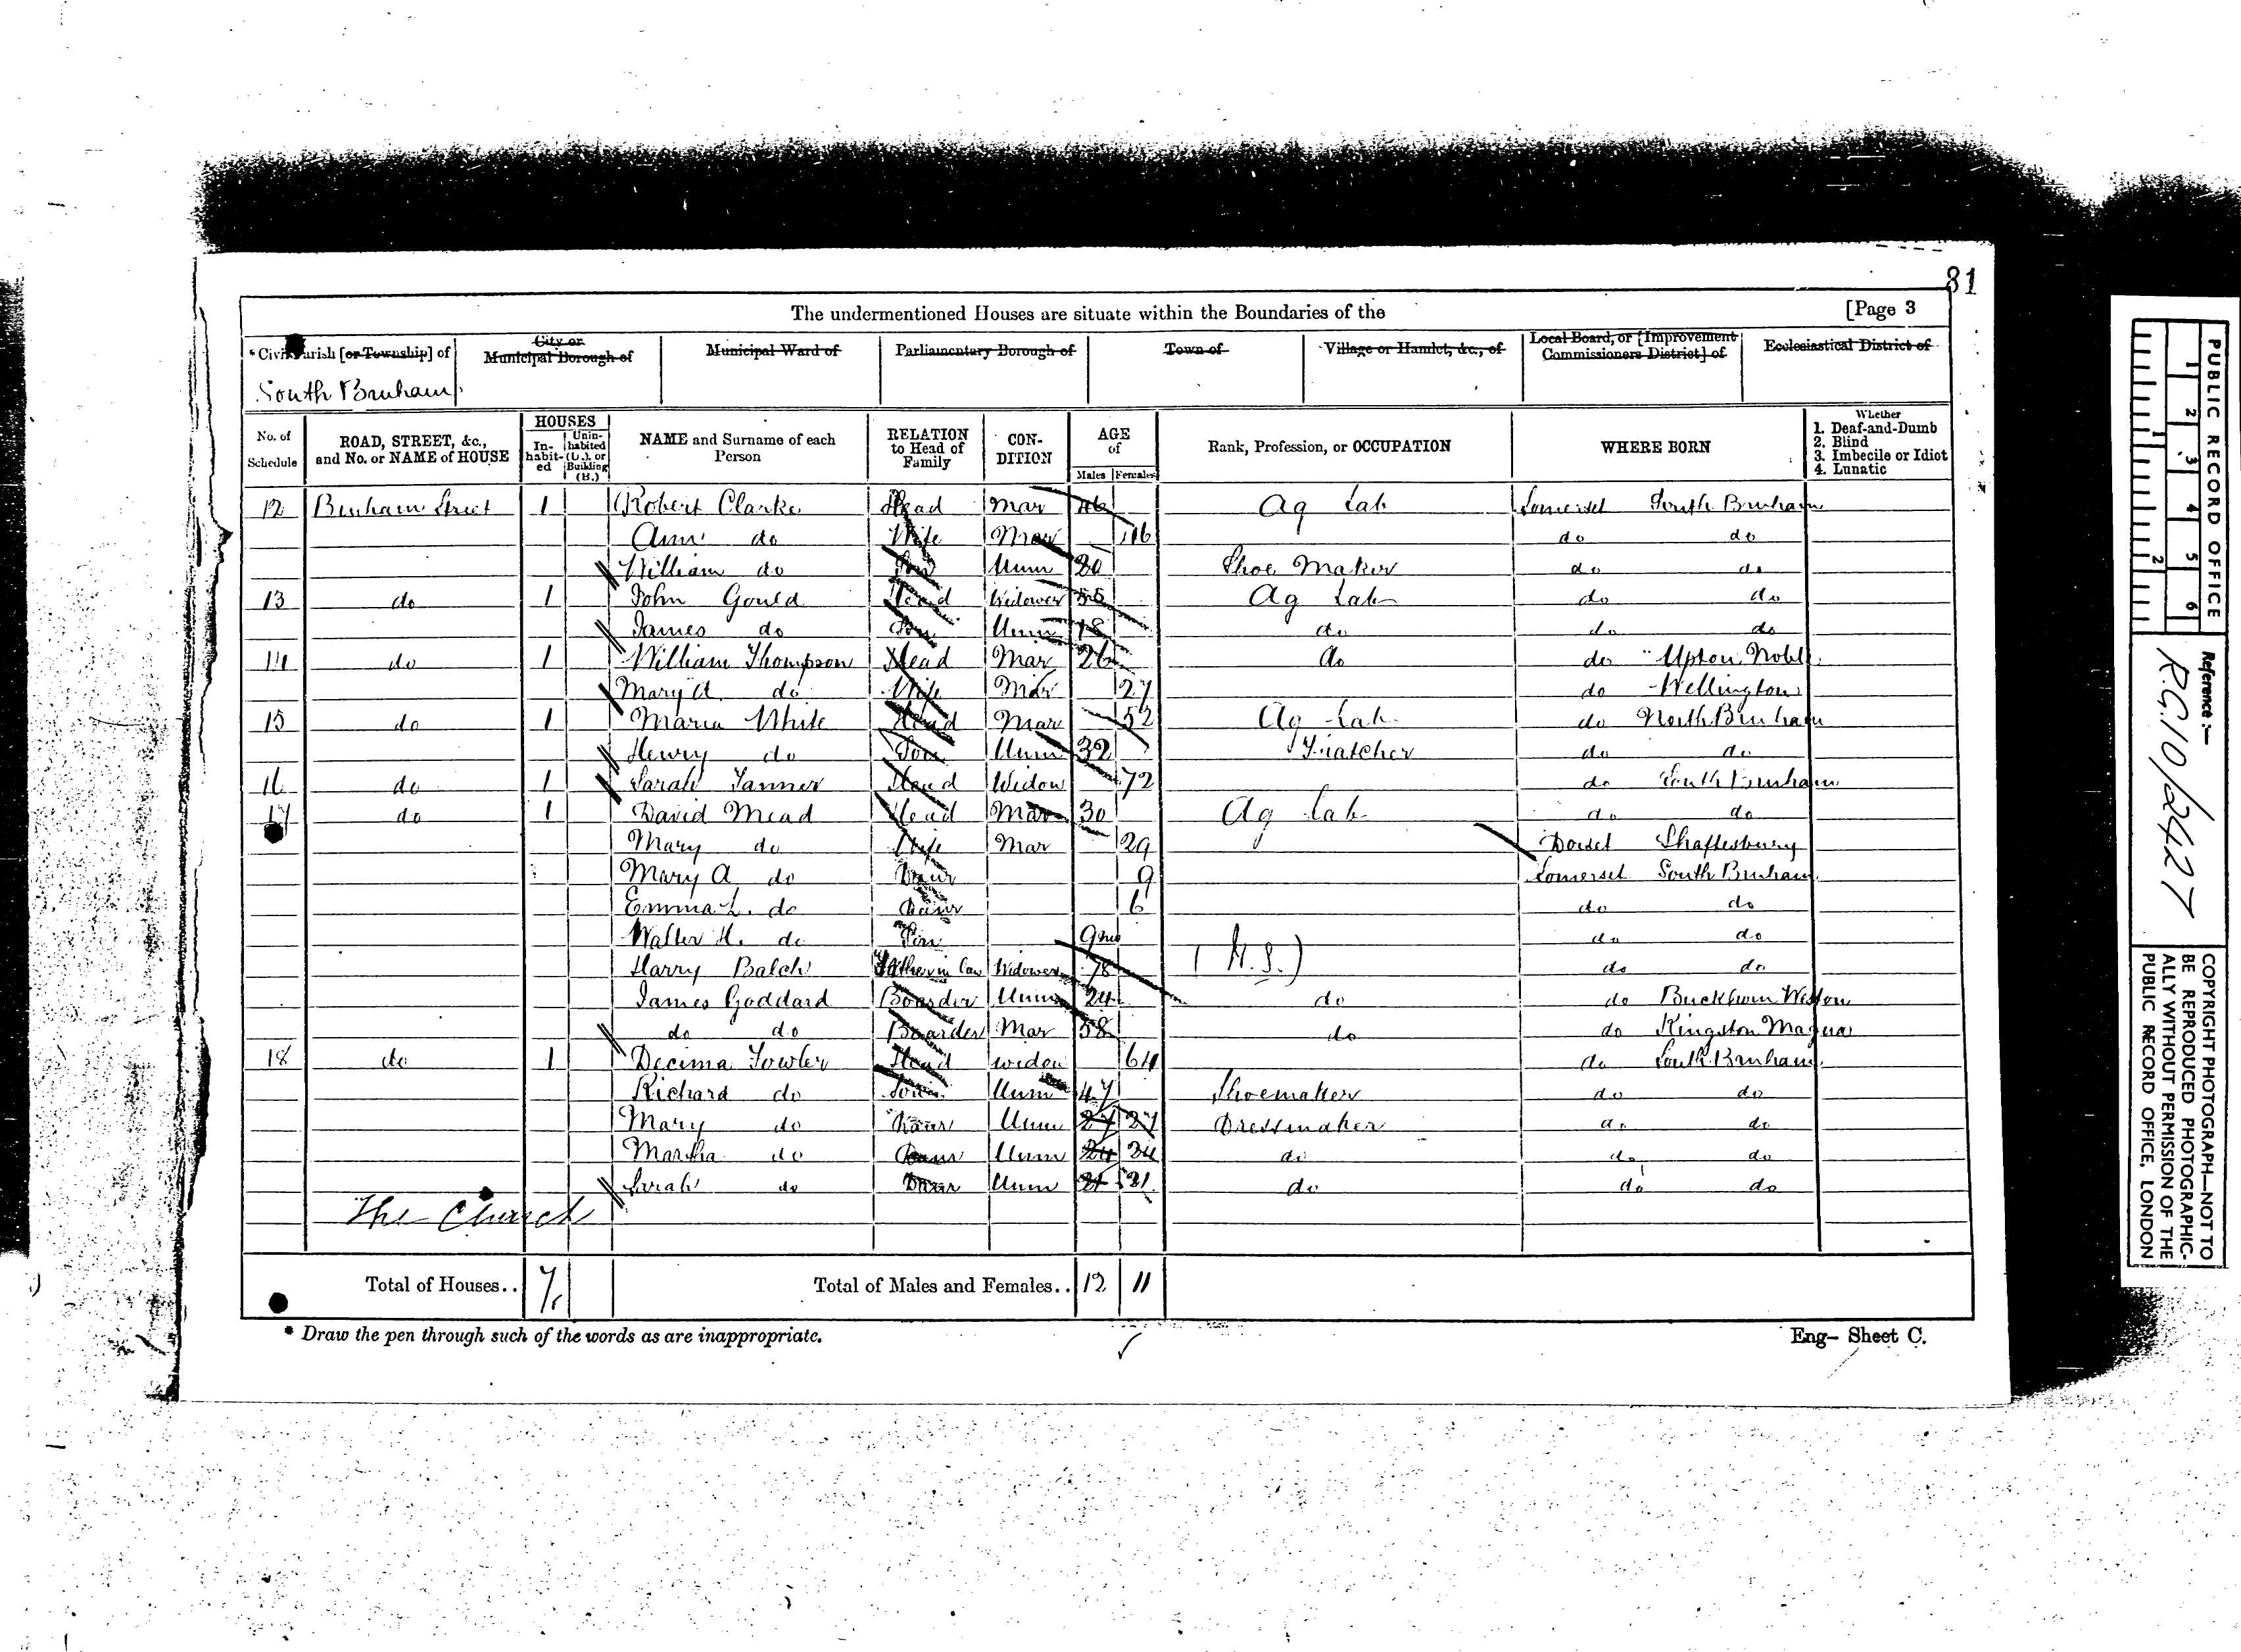 81
The undermentioned Houses are situate within the Boundaries of the [Page 3
* Civil Parish [or Township] of City or Municipal Borough of Municipal Ward of Parliamentary Borough of Town of Village or Hamlet, &c., of Local Board, or [Improvement Commissioners District] of Ecclesiastical District of
South Bruham
No. of Schedule ROAD, STREET, &c., and No. or NAME of HOUSE HOUSES Inhabited Uninhabited (U.), or Building (B.) NAME and Surname of each Person RELATION to Head of Family CONDITION AGE of Males Females Rank, Profession, or OCCUPATION WHERE BORN Whether 1. Deaf-and-Dumb 2. Blind 3. Imbecile or Idiot 4. Lunatic
12 Bruham Street 1 Robert Clarke Head Mar 46 Ag Lab Somerset South Bruham
Ann do Wife Mar 46 do do
William do Son Unm 20 Shoe Maker do do
13 do 1 John Gould Head Widower Ag Lab do do
James do Son Unm 18 do do do
14 do 1 William Thompson Head Mar 26 do do Upton Noble
Mary A do Wife Mar 27 do Wellington
15 do 1 Maria White Head Mar 52 Ag Lab do North Bruham
Henry do Son Unm 32 Thatcher do do
16 do 1 Sarah Tanner Head Widow 72 do South Bruham
17 do 1 David Mead Head Mar 30 Ag Lab do do
Mary do Wife Mar 29 Dorset Shaftesbury
Mary A do Daur 9 Somerset South Bruham
Emma L. do Daur 6 do do
Walter H. do Son 9mo do do
Harry Balch Father in Law Widower 78 do do
James Goddard Boarder Unm 24 do do Buckhorn Weston
do do Boarder Mar 58 do do Kingston Magna
18 do 1 Decima Fowler Head widow 64 do South Bruham
Richard do Son Unm 47 Shoemaker do do
Mary do Daur Unm 27 27 Dressmaker do do
Martha do Daur Unm 24 24 do do do
Sarah do Daur Unm 21 21 do do do
The Church
Total of Houses.. 7 Total of Males and Females.. 12 11
* Draw the pen through such of the words as are inappropriate.
Eng- Sheet C.
PUBLIC RECORD OFFICE
1 2 3 4 5 6
1 2
Reference:—
R.G. 10/2427
COPYRIGHT PHOTOGRAPH—NOT TO BE REPRODUCED PHOTOGRAPHICALLY WITHOUT PERMISSION OF THE PUBLIC RECORD OFFICE, LONDON